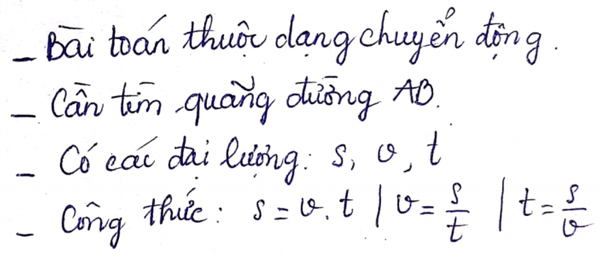 - Bài toán thuộc dạng chuyển động.
- Cần tìm quãng đường AB.
- Có các đại lượng: s, v, t
- Công thức: s = v.t | v = s/t | t = s/v